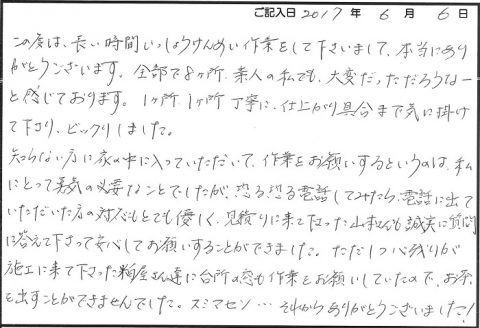 ご記入日 2017 年 6 月 6 日
この度は、長い時間いっしょうけんめい作業をして下さいまして、本当にあり
がとうございます。全部で8ヶ所、素人の私でも、大変だっただろうなー
と感じております。1ヶ所1ヶ所丁寧に、仕上がり具合まで気に掛け
て下さり、ビックリしました。
知らない方に家の中に入っていただいて、作業をお願いするというのは、私
にとって勇気の必要なことでしたが、恐る恐る電話してみたら、電話に出て
いただいた方の対応もとても優しく、見積りに来て下さった山本さんも誠実に質問
に答えて下さって安心してお願いすることができました。ただ1つ心残りが
施工に来て下さった粕屋さん達に台所の窓も作業をお願いしていたので、お茶
を出すことができませんでした。スミマセン… それからありがとうございました!